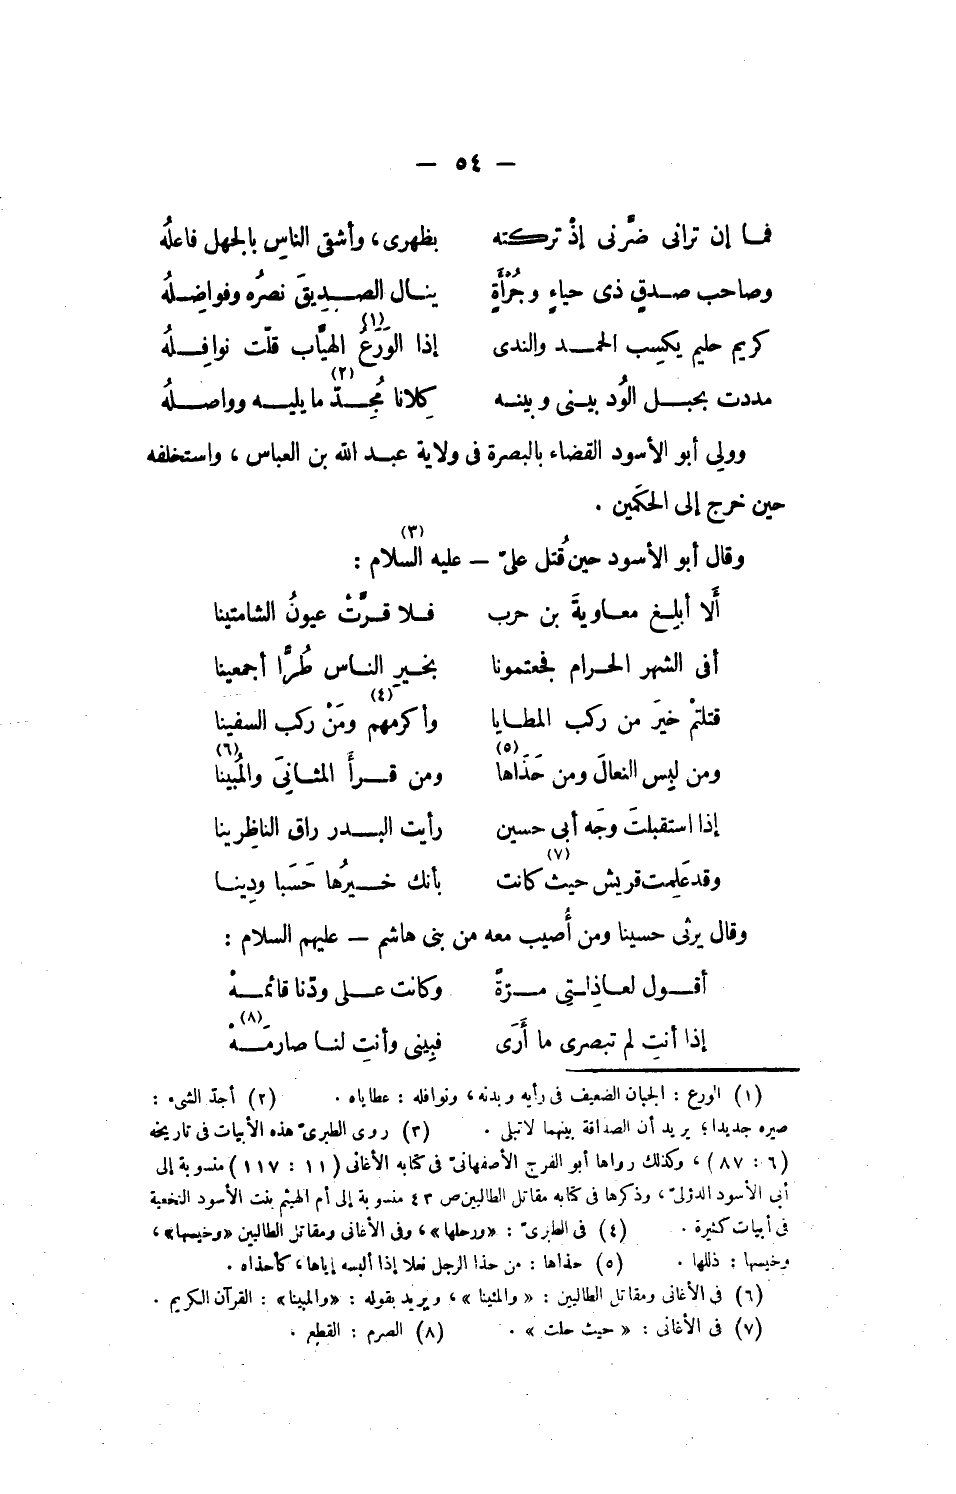 — ٥٤ —
فما إن ترانى ضرَّنى إذْ تركته بظهرى، وأشقى الناسِ بالجهل فاعلُه
وصاحب صدقٍ ذى حياءٍ وجُرْأَةٍ ينال الصديقَ نصرُه وفواضِلُه
كريم حليم يكسِب الحمد والندى إذا الوَرَعُ (١) الهيَّاب قلّت نوافِلُه
مددت بحبل الوُد بينى وبينه كِلانا مُجِدّ (٢) ما يليه وواصلُه
وولِى أبو الأسود القضاء بالبصرة فى ولاية عبد الله بن العباس، واستخلفه
حين خرج إلى الحكَمين .
وقال أبو الأسود حين قُتل علىّ — عليه السلام (٣) :
أَلا أبلِغ معاويةَ بن حرب فلا قرَّتْ عيونُ الشامتينا
أفى الشهر الحرام فجعتمونا بخير الناس طُرًّا أجمعينا
قتلتمْ خيرَ من ركب المطايا وأكرمهم (٤) ومَنْ ركب السفينا
ومن لبِس النعالَ ومن حَذَاها (٥) ومن قرأَ المثانِىَ والمُبينا (٦)
إذا استقبلتَ وجَه أبى حسين رأيت البدر راق الناظِرينا
وقد علِمت قريش حيث كانت (٧) بأنك خيرُها حَسَبا ودِينا
وقال يرثى حسينا ومن أُصيب معه من بنى هاشم — عليهم السلام :
أقول لعاذِلتِى مرّةً وكانت على ودّنا قائمهْ
إذا أنتِ لم تبصرى ما أَرَى فبِينى وأنتِ لنا صارمَهْ (٨)
(١) الورع : الجبان الضعيف فى رأيه وبدنه، ونوافله : عطاياه . (٢) أجدّ الشىء :
صيره جديدا؛ يريد أن الصداقة بينهما لا تبلى . (٣) روى الطبرىّ هذه الأبيات فى تاريخه
(٦ : ٨٧)، وكذلك رواها أبو الفرج الأصفهانىّ فى كتابه الأغانى (١١ : ١١٧) منسوبة إلى
أبى الأسود الدؤلىّ، وذكرها فى كتابه مقاتل الطالبيين ص ٤٣ منسوبة إلى أم الهيثم بنت الأسود النخعية
فى أبيات كثيرة . (٤) فى الطبرىّ : «ورحلها»، وفى الأغانى ومقاتل الطالبيين «وخيسها»،
وخيسها : ذللها . (٥) حذاها : من حذا الرجل نعلا إذا ألبسه إياها، كأحذاه .
(٦) فى الأغانى ومقاتل الطالبيين : « والمئينا »، ويريد بقوله : «والمبينا» : القرآن الكريم .
(٧) فى الأغانى : « حيث حلت » . (٨) الصرم : القطع .